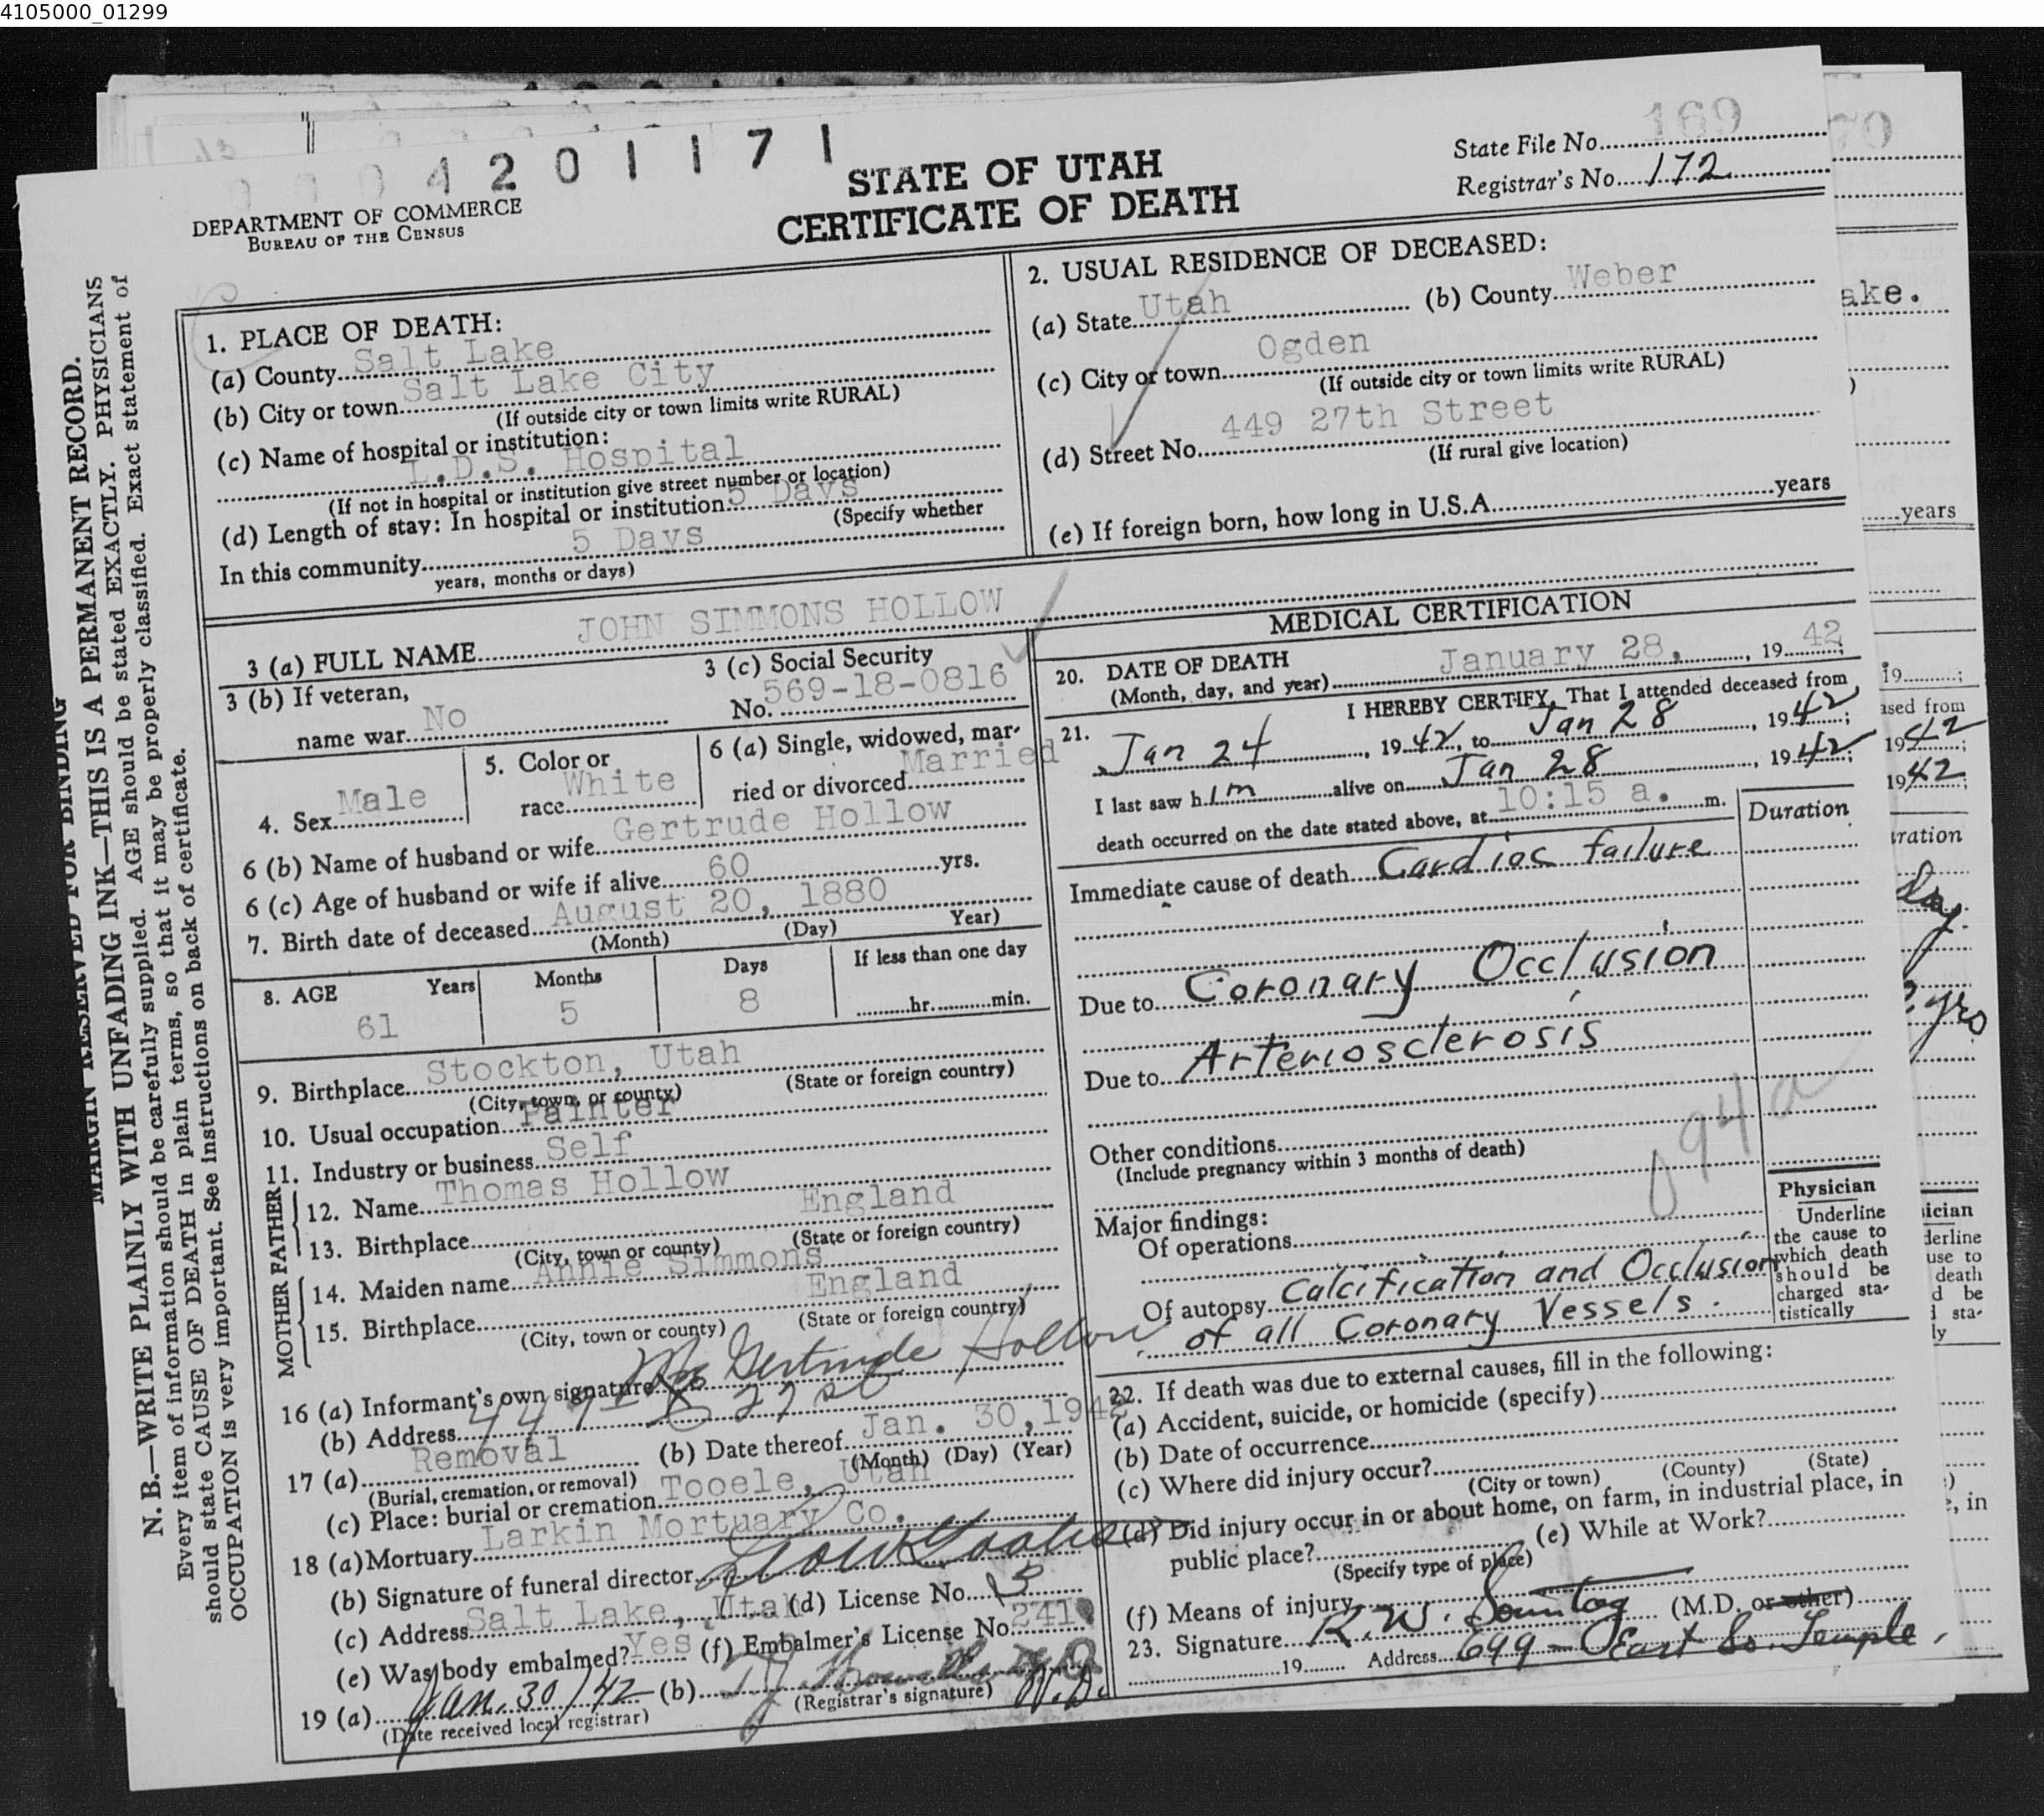 4105000_01299
4201171
DEPARTMENT OF COMMERCE
BUREAU OF THE CENSUS
STATE OF UTAH
CERTIFICATE OF DEATH
State File No. 169
Registrar's No. 172
MARGIN RESERVED FOR BINDING
N. B.—WRITE PLAINLY WITH UNFADING INK—THIS IS A PERMANENT RECORD.
Every item of information should be carefully supplied. AGE should be stated EXACTLY. PHYSICIANS
should state CAUSE OF DEATH in plain terms, so that it may be properly classified. Exact statement of
OCCUPATION is very important. See instructions on back of certificate.
1. PLACE OF DEATH:
(a) County Salt Lake
(b) City or town Salt Lake City
(If outside city or town limits write RURAL)
(c) Name of hospital or institution:
L.D.S. Hospital
(If not in hospital or institution give street number or location)
(d) Length of stay: In hospital or institution 5 Days
(Specify whether
In this community 5 Days
years, months or days)
2. USUAL RESIDENCE OF DECEASED:
(a) State Utah (b) County Weber
(c) City or town Ogden
(If outside city or town limits write RURAL)
(d) Street No. 449 27th Street
(If rural give location)
(e) If foreign born, how long in U.S.A. years
3 (a) FULL NAME JOHN SIMMONS HOLLOW
3 (b) If veteran,
name war No
3 (c) Social Security
No. 569-18-0816
4. Sex Male
5. Color or
race White
6 (a) Single, widowed, mar-
ried or divorced Married
6 (b) Name of husband or wife Gertrude Hollow
6 (c) Age of husband or wife if alive 60 yrs.
7. Birth date of deceased August 20, 1880
(Month) (Day) Year)
8. AGE Years Months Days If less than one day
61 5 8 hr. min.
9. Birthplace Stockton, Utah
(City, town, or county) (State or foreign country)
10. Usual occupation Painter
11. Industry or business Self
FATHER
12. Name Thomas Hollow
13. Birthplace England
(City, town or county) (State or foreign country)
MOTHER
14. Maiden name Annie Simmons
15. Birthplace England
(City, town or county) (State or foreign country)
16 (a) Informant's own signature Mrs Gertrude Hollow
(b) Address 27 St
17 (a) Removal (b) Date thereof Jan. 30, 1942
(Burial, cremation, or removal) (Month) (Day) (Year)
(c) Place: burial or cremation Tooele, Utah
18 (a) Mortuary Larkin Mortuary Co.
(b) Signature of funeral director
(c) Address Salt Lake, Utah (d) License No.
(e) Was body embalmed? Yes (f) Embalmer's License No. 241
19 (a) Jan. 30/42 (b)
(Date received local registrar) (Registrar's signature)
MEDICAL CERTIFICATION
20. DATE OF DEATH
(Month, day, and year) January 28, 1942
21. I HEREBY CERTIFY, That I attended deceased from
Jan 24, 1942, to Jan 28, 1942;
I last saw him alive on Jan 28, 1942;
death occurred on the date stated above, at 10:15 a. m.
Duration
Immediate cause of death Cardiac failure
Due to Coronary Occlusion
Due to Arteriosclerosis
Other conditions
(Include pregnancy within 3 months of death)
94a
Major findings:
Of operations
Of autopsy Calcification and Occlusion
of all Coronary Vessels.
Physician
Underline
the cause to
which death
should be
charged sta-
tistically
22. If death was due to external causes, fill in the following:
(a) Accident, suicide, or homicide (specify)
(b) Date of occurrence
(c) Where did injury occur?
(City or town) (County) (State)
(d) Did injury occur in or about home, on farm, in industrial place, in
public place? (e) While at Work?
(Specify type of place)
(f) Means of injury
23. Signature R. W. Sonntag (M.D. or other)
19 Address 699 East So. Temple.
70
ake.
years
19
ased from
1942
1942
ration
Day
yrs
ician
derline
use to
death
d be
sta-
ly
, in